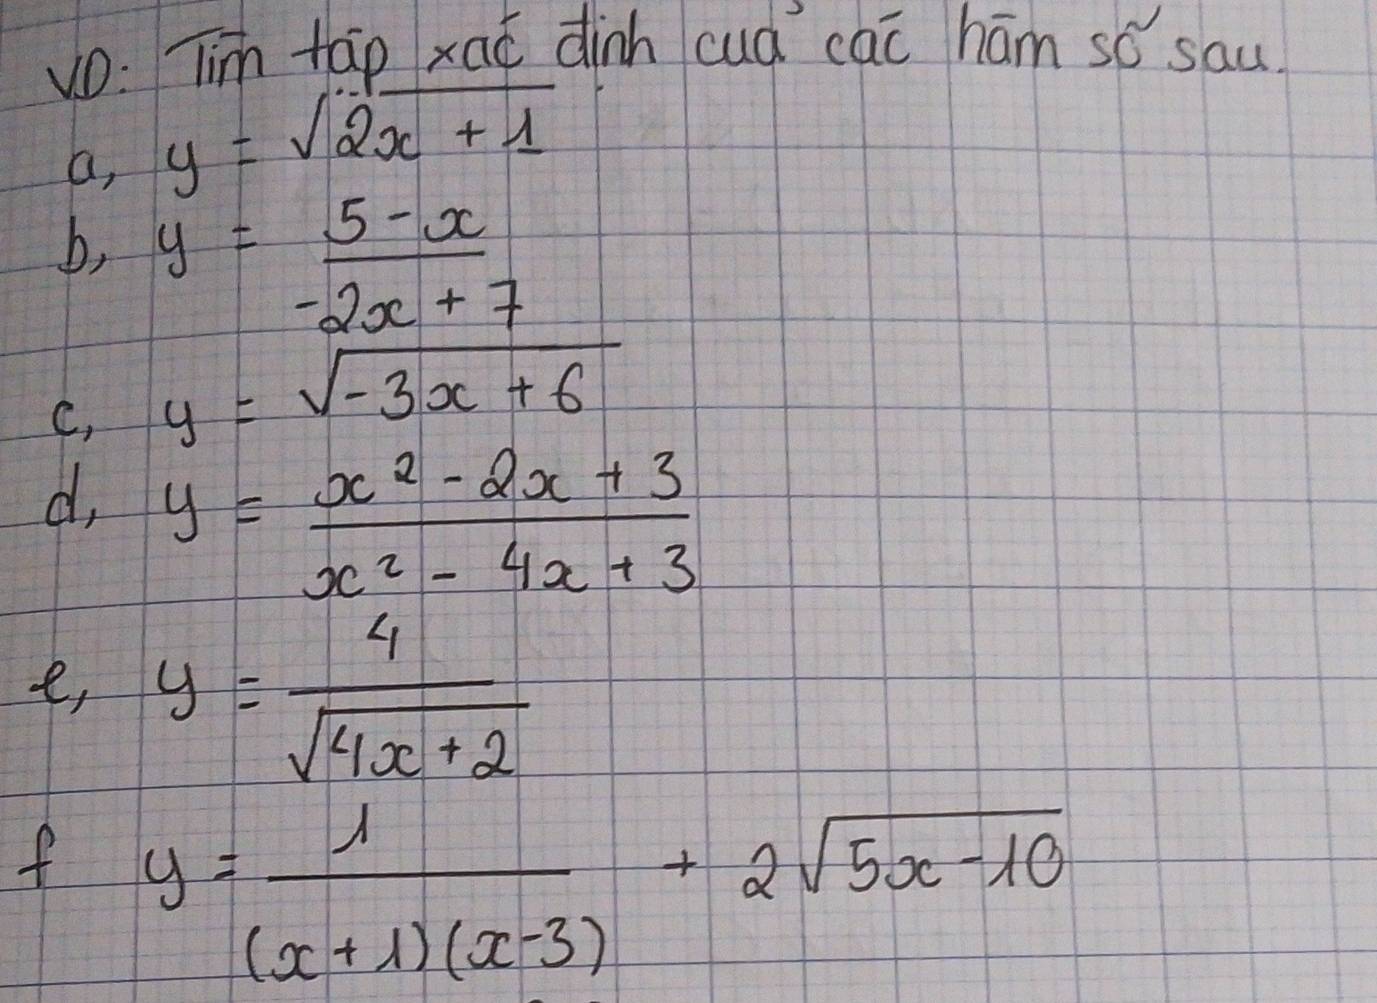 VD: Tìm tập xác định của các hàm số sau.
a, y = √(2x + 1)
b, y = (5 - x) / (-2x + 7)
c, y = √(-3x + 6)
d, y = (x² - 2x + 3) / (x² - 4x + 3)
e, y = 4 / √(4x + 2)
f y = 1 / ((x + 1)(x - 3)) + 2√(5x - 10)